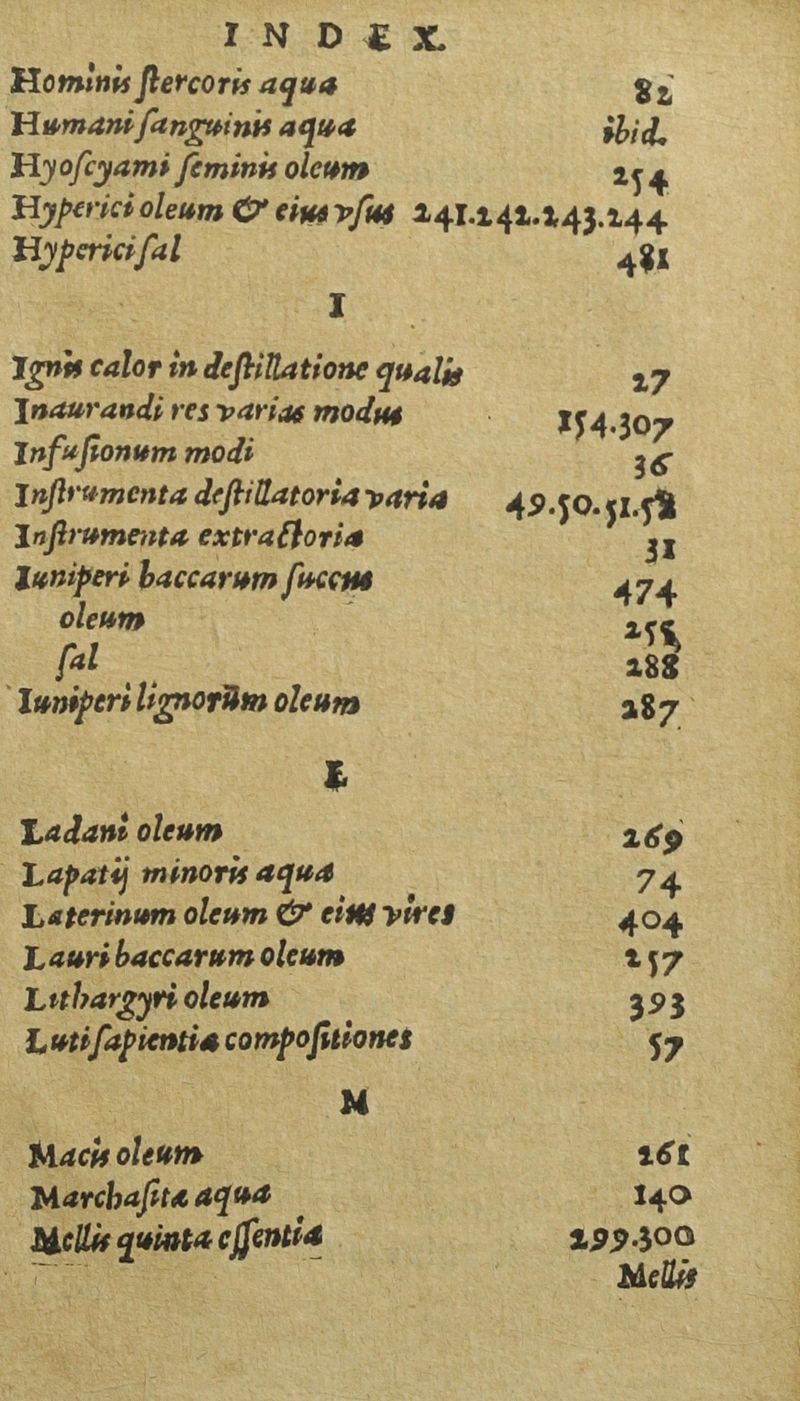 INDEX.
Hominis ſtercoris aqua 82
Humani ſanguinis aqua ibid.
Hyoſcyami ſeminis oleum 254
Hyperici oleum & eius vſus 241.242.243.244
Hyperici ſal 481
I
Ignis calor in deſtillatione qualis 27
Inaurandi res varias modus 154.307
Infuſionum modi 36
Inſtrumenta deſtillatoria varia 49.50.51.58
Inſtrumenta extractoria 31
Iuniperi baccarum ſuccus 474
oleum 255
ſal 288
Iuniperi lignorum oleum 287
L
Ladani oleum 269
Lapatij minoris aqua 74
Laterinum oleum & eius vires 404
Lauri baccarum oleum 257
Lithargyri oleum 393
Luti ſapientiæ compoſitiones 57
M
Macis oleum 261
Marchaſitæ aqua 140
Mellis quinta eſſentia 299.300
Mellis